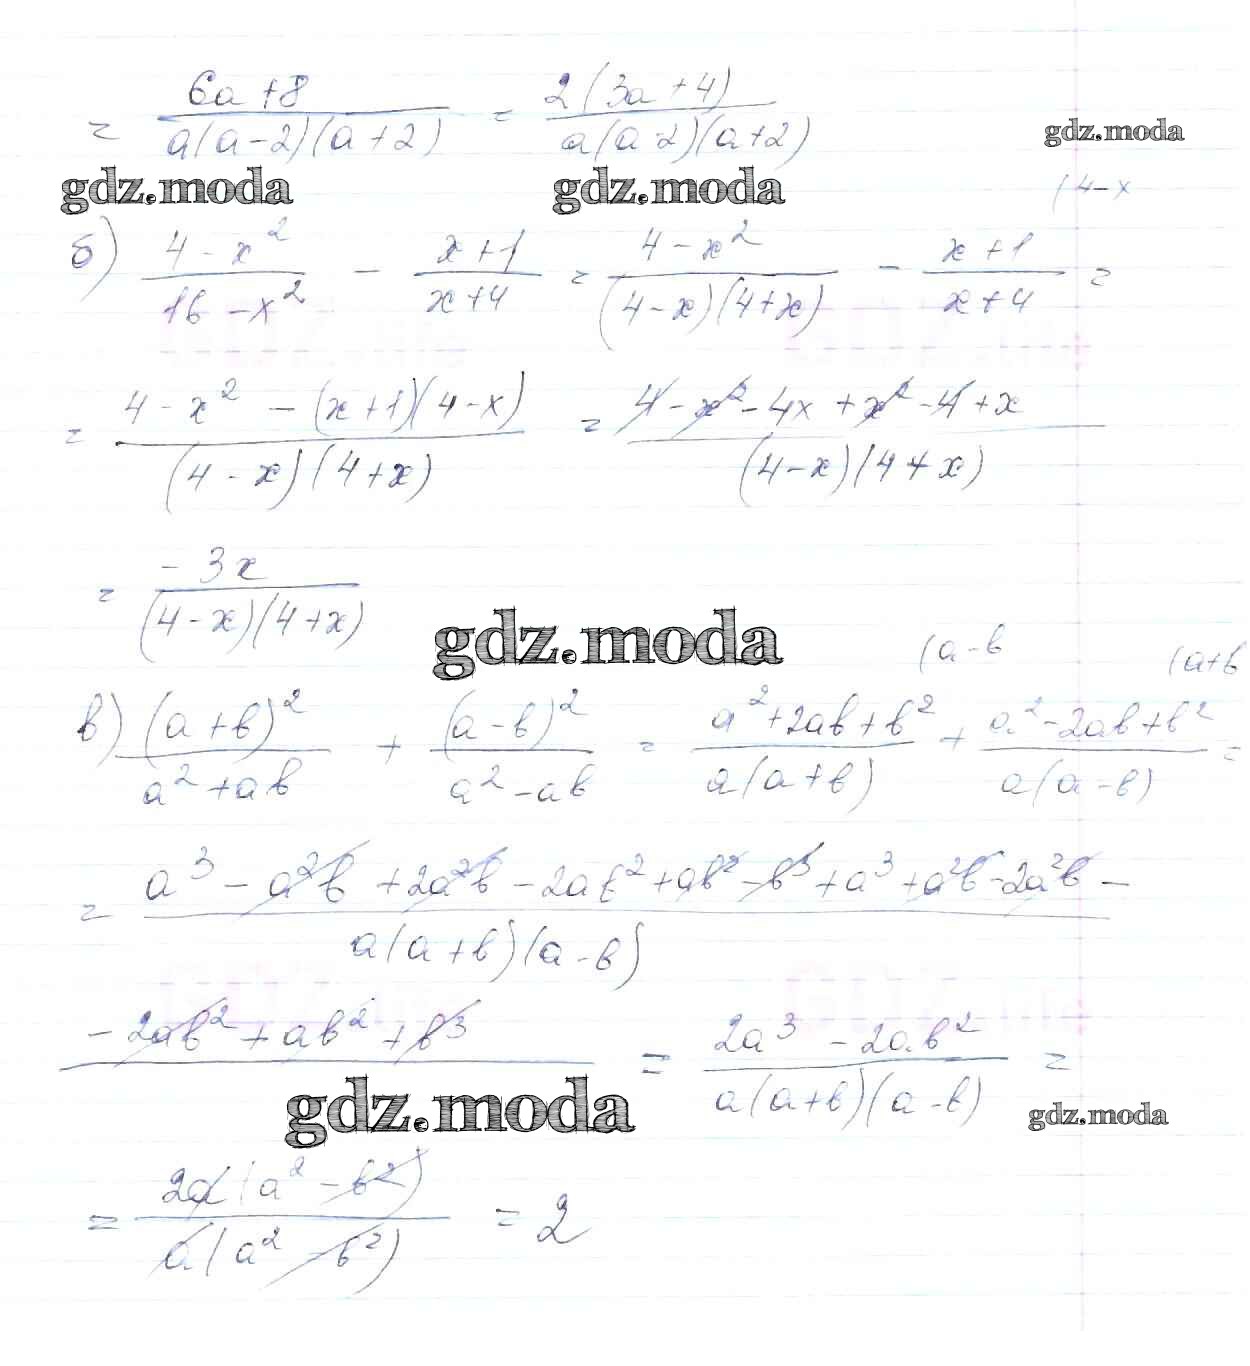 = 6a+8 / a(a-2)(a+2) = 2(3a+4) / a(a-2)(a+2)
gdz.moda
gdz.moda gdz.moda
(4-x
б) 4-x² / 16-x² - x+1 / x+4 = 4-x² / (4-x)(4+x) - x+1 / x+4 =
= 4-x² -(x+1)(4-x) / (4-x)(4+x) = 4-x²-4x+x²-4+x / (4-x)(4+x)
= -3x / (4-x)(4+x)
gdz.moda
(a-b (a+b
в) (a+b)² / a²+ab + (a-b)² / a²-ab = a²+2ab+b² / a(a+b) + a²-2ab+b² / a(a-b) =
= a³-a²b+2a²b-2ab²+ab²-b³+a³+a²b-2a²b- / a(a+b)(a-b)
-2ab²+ab²+b³ = 2a³-2ab² / a(a+b)(a-b) =
gdz.moda gdz.moda
= 2a(a²-b²) / a(a²-b²) = 2